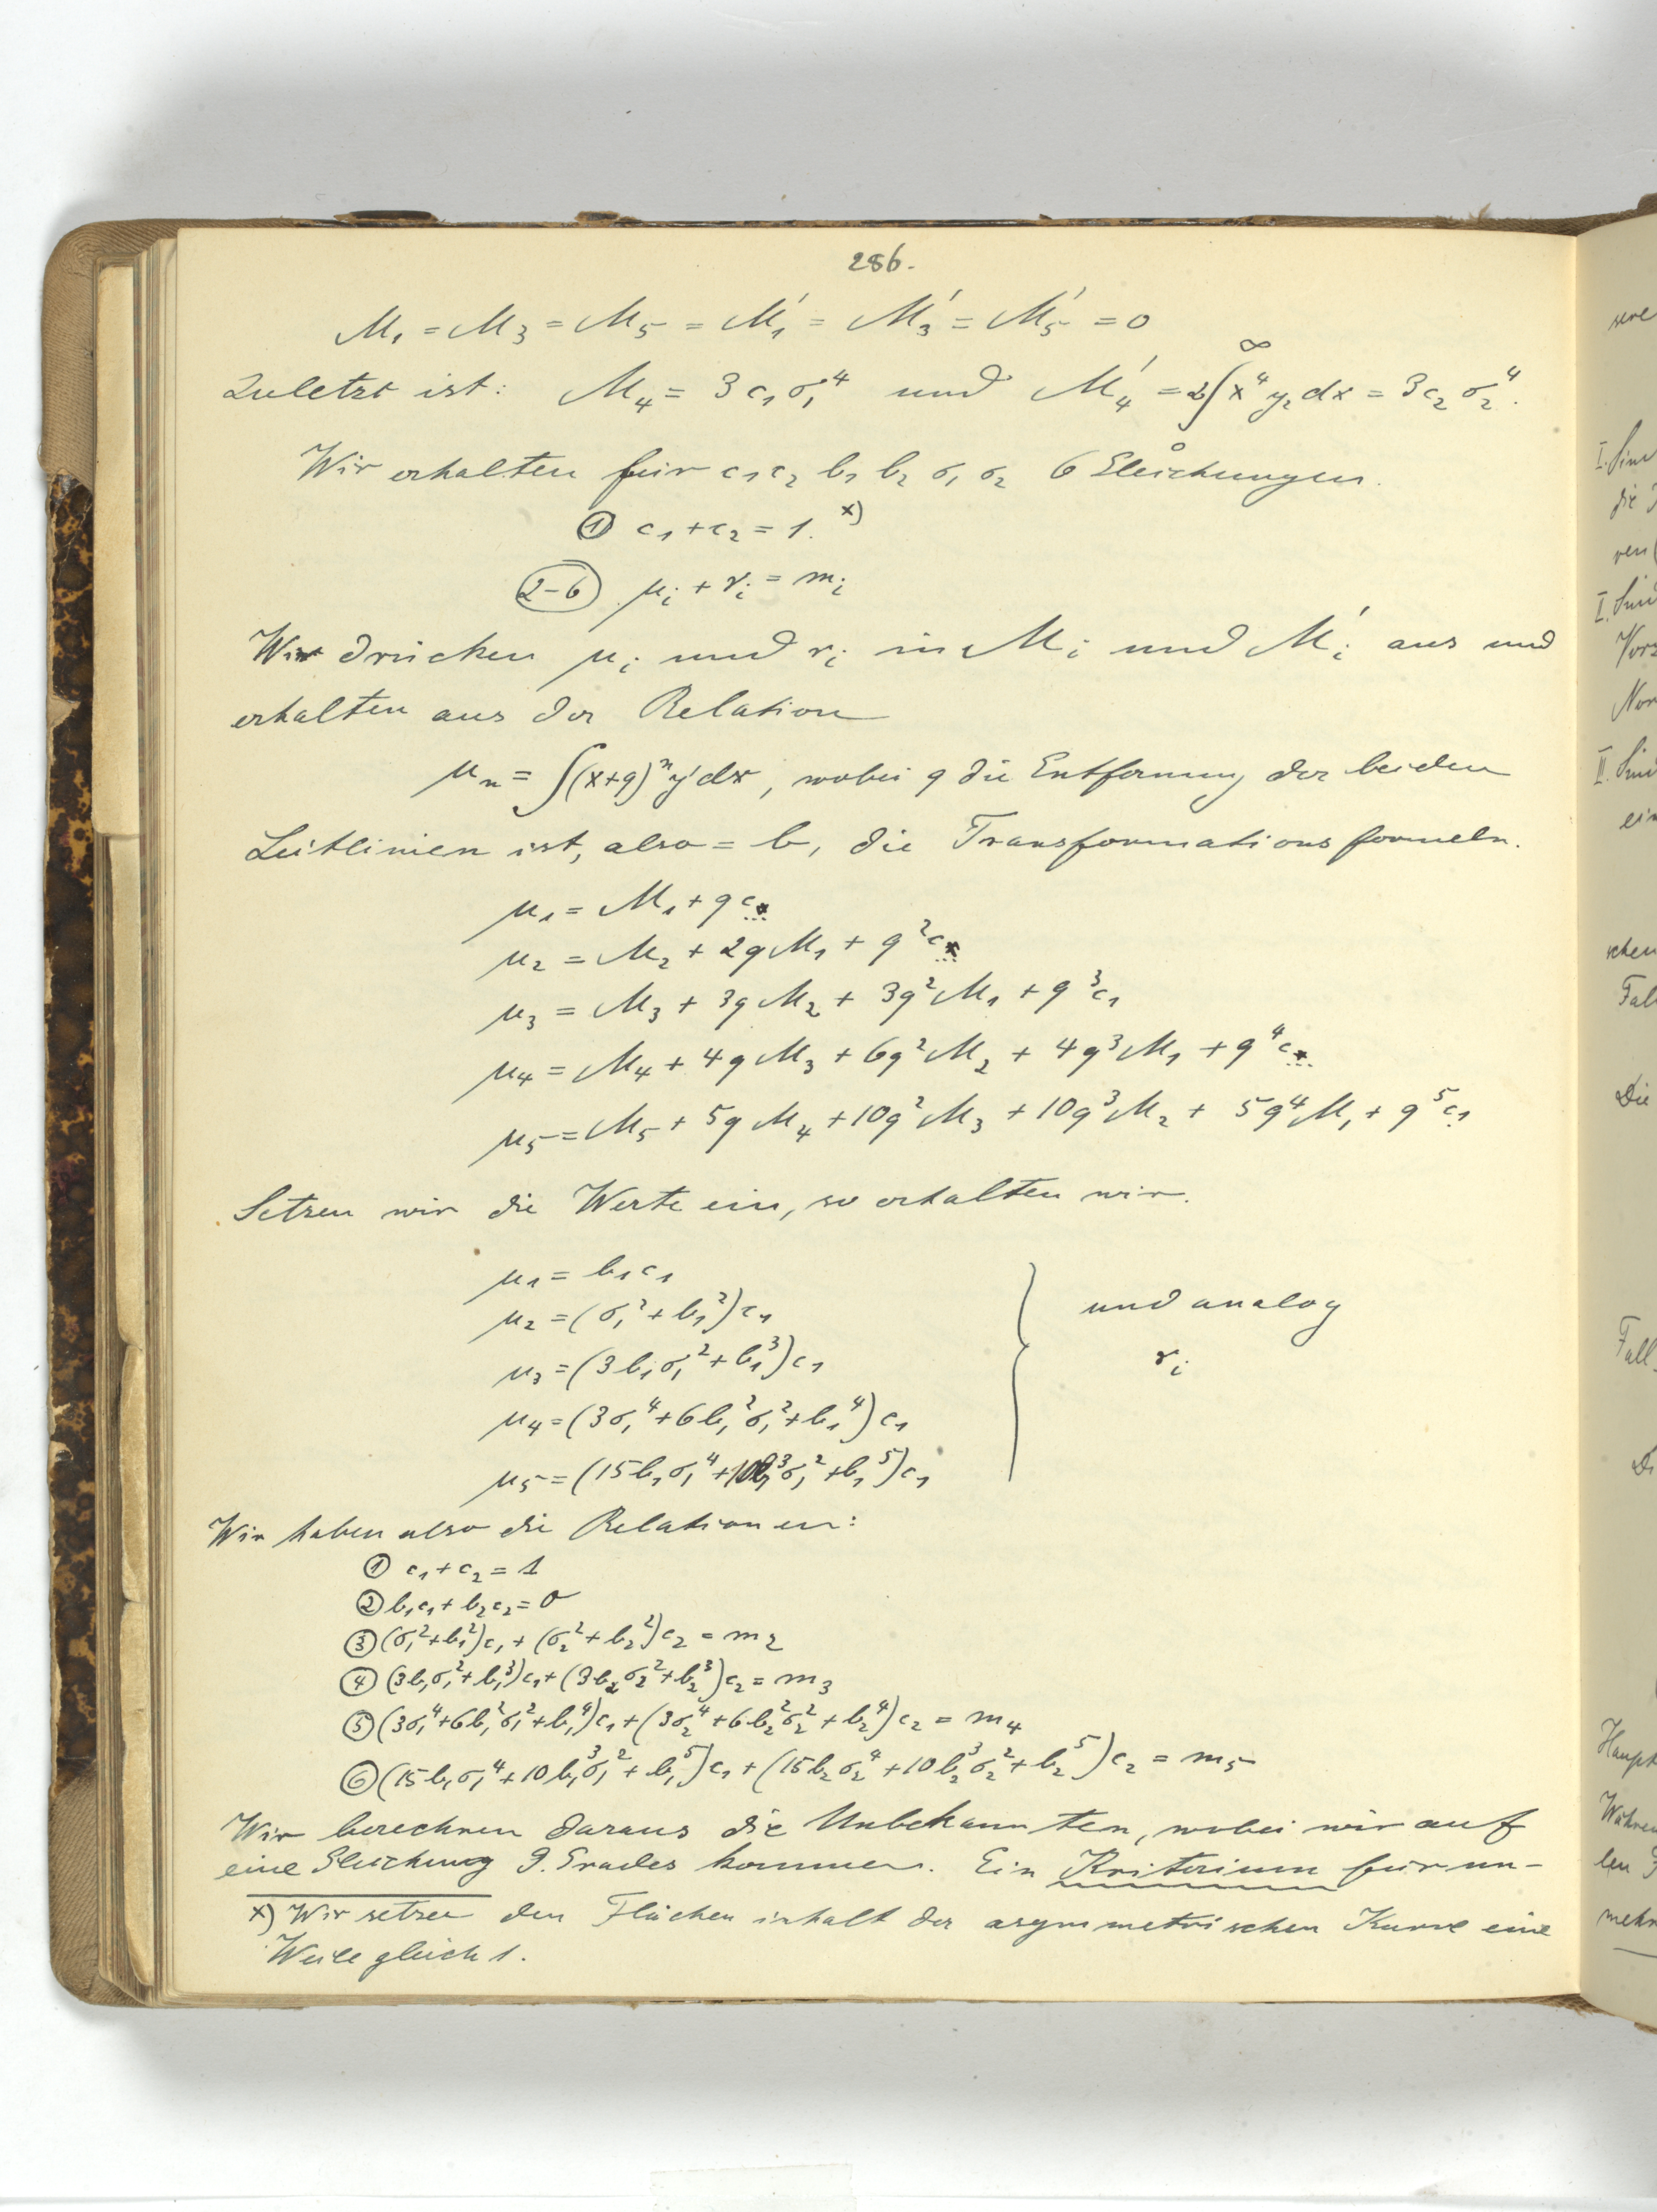 286.
M₁ = M₃ = M₅ = M₁' = M₃' = M₅' = 0
Zuletzt ist: M₄ = 3c₁σ₁⁴ und M₄' = 2∫₀^∞ x⁴y₂dx = 3c₂σ₂⁴.
Wir erhalten für c₁ c₂ b₁ b₂ σ₁ σ₂ 6 Gleichungen.
① c₁ + c₂ = 1. ˣ⁾
(2–6) μᵢ + νᵢ = mᵢ
Wir drücken μᵢ und νᵢ in Mᵢ und Mᵢ' aus und
erhalten aus der Relation
μₙ = ∫(x+q)ⁿy'dx, wobei q die Entfernung der beiden
Leitlinien ist, also = b, die Transformationsformeln.
μ₁ = M₁ + qc
μ₂ = M₂ + 2qM₁ + q²c
μ₃ = M₃ + 3qM₂ + 3q²M₁ + q³c₁
μ₄ = M₄ + 4qM₃ + 6q²M₂ + 4q³M₁ + q⁴c
μ₅ = M₅ + 5qM₄ + 10q²M₃ + 10q³M₂ + 5q⁴M₁ + q⁵c₁
Setzen wir die Werte ein, so erhalten wir.
μ₁ = b₁c₁
μ₂ = (σ₁² + b₁²)c₁ und analog
μ₃ = (3b₁σ₁² + b₁³)c₁ νᵢ
μ₄ = (3σ₁⁴ + 6b₁²σ₁² + b₁⁴)c₁
μ₅ = (15b₁σ₁⁴ + 10b₁³σ₁² + b₁⁵)c₁
Wir haben also die Relationen:
① c₁ + c₂ = 1
② b₁c₁ + b₂c₂ = 0
③ (σ₁² + b₁²)c₁ + (σ₂² + b₂²)c₂ = m₂
④ (3b₁σ₁² + b₁³)c₁ + (3b₂σ₂² + b₂³)c₂ = m₃
⑤ (3σ₁⁴ + 6b₁²σ₁² + b₁⁴)c₁ + (3σ₂⁴ + 6b₂²σ₂² + b₂⁴)c₂ = m₄
⑥ (15b₁σ₁⁴ + 10b₁³σ₁² + b₁⁵)c₁ + (15b₂σ₂⁴ + 10b₂³σ₂² + b₂⁵)c₂ = m₅
Wir berechnen daraus die Unbekannten, wobei wir auf
eine Gleichung 9. Grades kommen. Ein Kriterium für un-
x) Wir setzen den Flächeninhalt der asymmetrischen Kurve eine
Weile gleich 1.
I.
die
I.
II.
Die
Fall